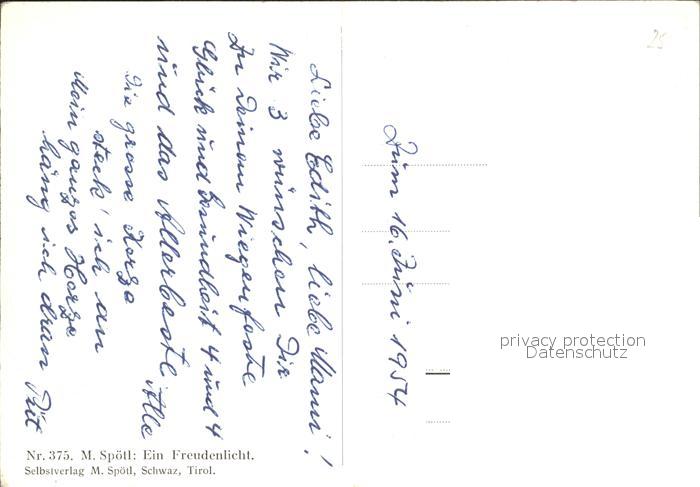 Liebe Edith, liebe Mami!
Wir 3 wünschen Dir
Zu Deinem Wiegenfeste
Glück und Gesundheit 4 und 4
und das Allerbeste Alle
Die grosse Kerze
steck' ich an
Mein ganzes Herze
häng ich dran
Zum 16. Juni 1954
25
privacy protection
Datenschutz
Nr. 375. M. Spötl: Ein Freudenlicht.
Selbstverlag M. Spötl, Schwaz, Tirol.